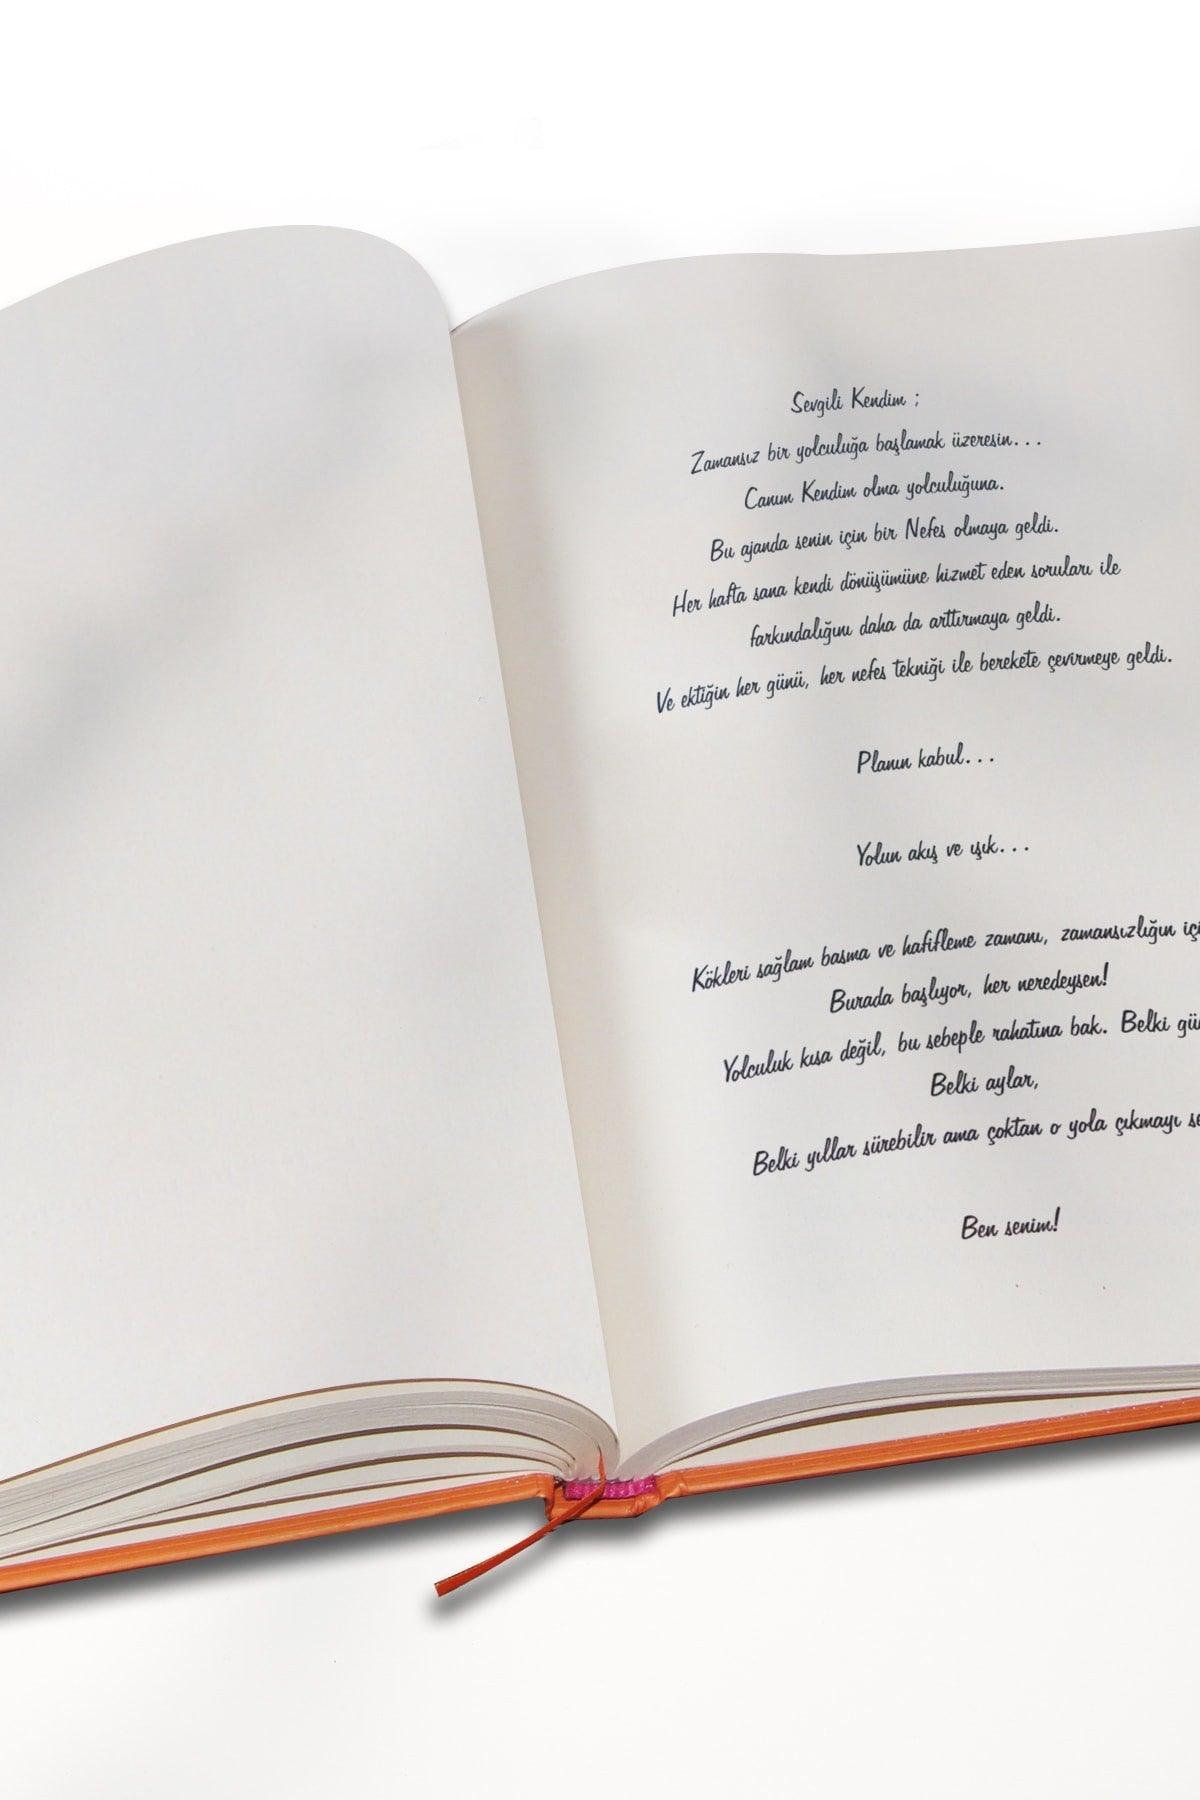 Sevgili Kendim ;
Zamansız bir yolculuğa başlamak üzeresin...
Canım Kendim olma yolculuğuna.
Bu ajanda senin için bir Nefes olmaya geldi.
Her hafta sana kendi dönüşümüne hizmet eden soruları ile
farkındalığını daha da arttırmaya geldi.
Ve ektiğin her günü, her nefes tekniği ile berekete çevirmeye geldi.
Planın kabul...
Yolun akış ve ışık...
Kökleri sağlam basma ve hafifleme zamanı, zamansızlığın
Burada başlıyor, her neredeysen!
Yolculuk kısa değil, bu sebeple rahatına bak. Belki
Belki aylar,
Belki yıllar sürebilir ama çoktan o yola çıkmayı
Ben senim!